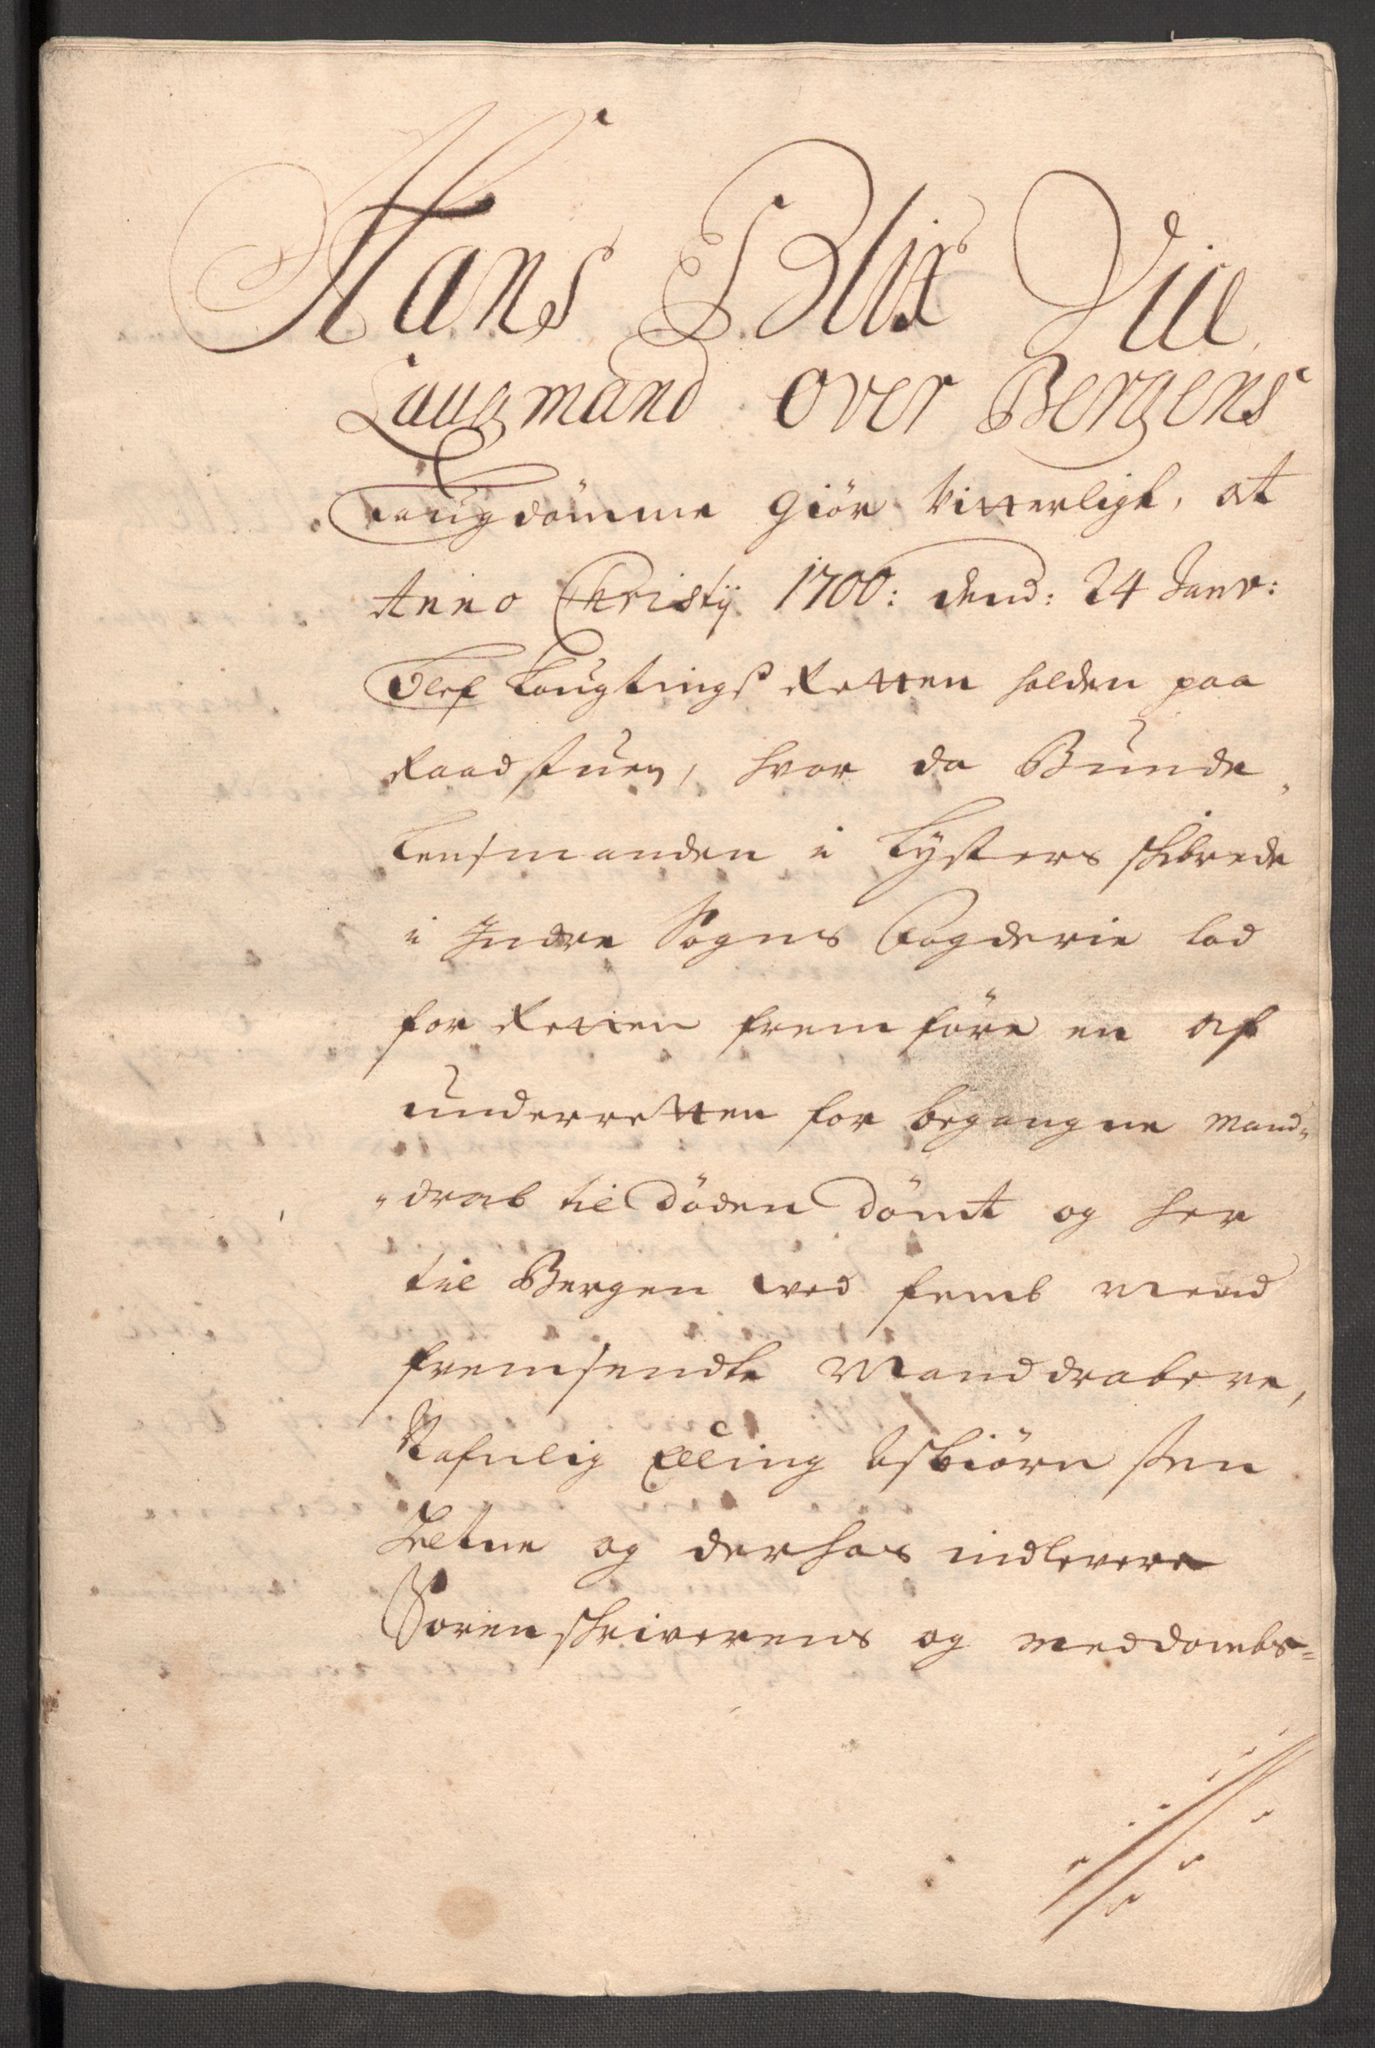 Hans Blix Vice
Laugmand over Bergens
Laugdømme Giør Vitterligt, at
Anno Christij 1700: dend: 24 Janv:
blef Laugtings Retten holden paa
Raadstuen, hvor da Bunde
Lensmanden i Lysters skibrede
i Indre Sogns Fogderie lod
for Retten fremføre en af
underretten for begangne Mand-
drab til døden dømt og her
til Bergen ved femb Mend
fremsendte Manddrabere,
Nafnlig Elling Asbiørnsen
og derhos indlevere
Sorenskriverens og meddombs-